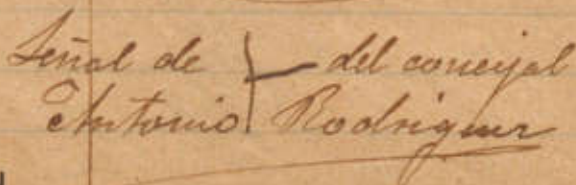 Señal de del concejal
Antonio Rodriguez